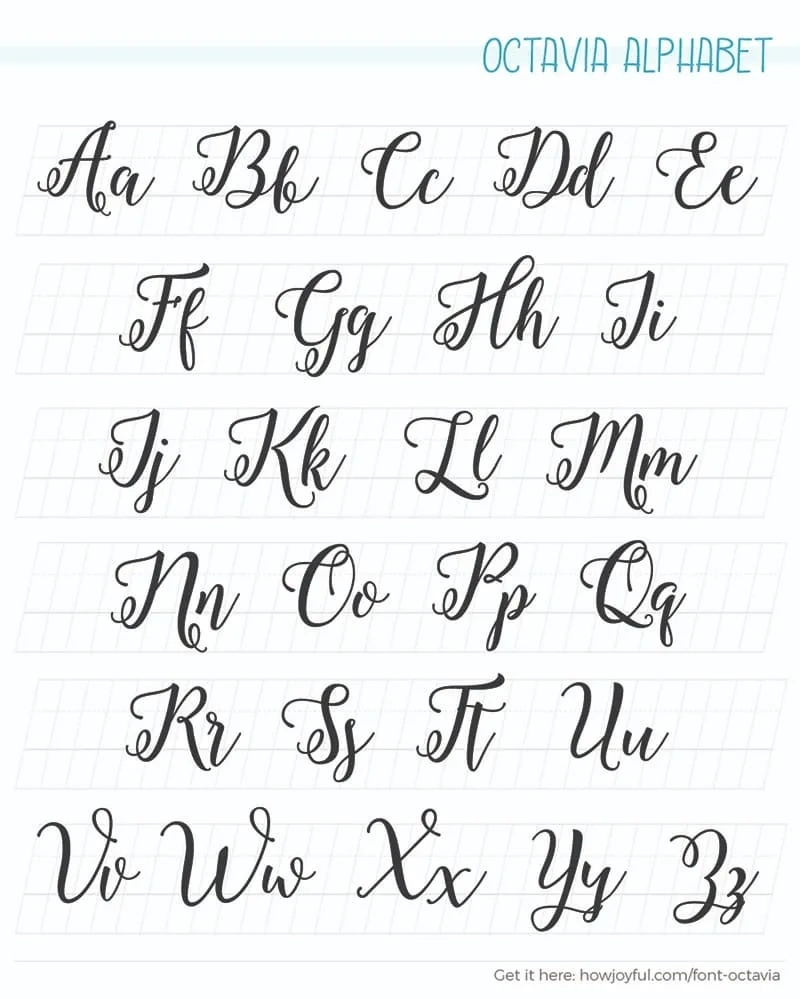 OCTAVIA ALPHABET
Aa Bb Cc Dd Ee
Ff Gg Hh Ii
Jj Kk Ll Mm
Nn Oo Pp Qq
Rr Ss Tt Uu
Vv Ww Xx Yy Zz
Get it here: howjoyful.com/font-octavia